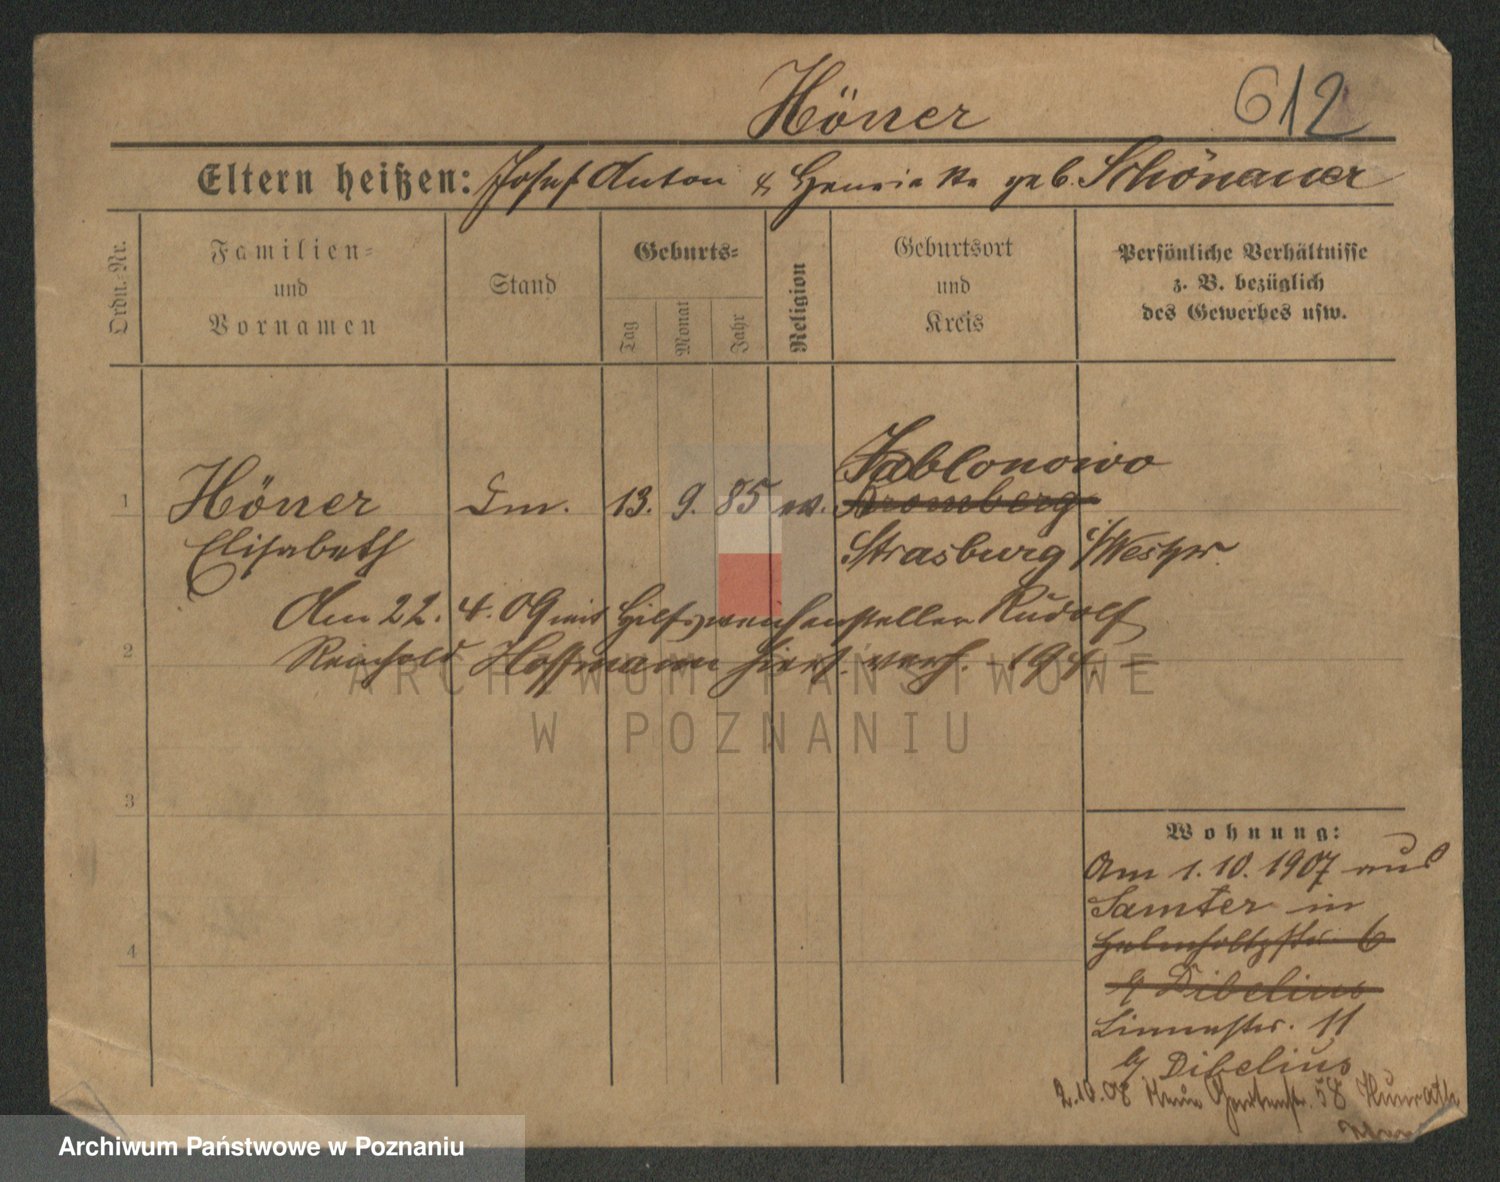 Höner
612
Eltern heißen: Josef Anton & Henriette geb. Schönauer
Ordn.-Nr.
Familien-
und
Vornamen
Stand
Geburts-
Tag
Monat
Jahr
Religion
Geburtsort
und
Kreis
Persönliche Verhältnisse
z. B. bezüglich
des Gewerbes usw.
Jablonowo
1 Höner 13. 9. 85 ev. Bromberg
Elisabeth Strasburg i/Westpr.
Am 22. 4. 09 mit Hilfsweichensteller Rudolf
2
Reinhold Hoffmann hiers. verh.
3
4
Wohnung:
Am 1. 10. 1907 aus
Samter in
Helmholtzstr. 6
b/ Dibelius
11
b/ Dibelius
2.10.08 Neue Gartenstr. 58
ARCHIWUM PAŃSTWOWE
W POZNANIU
Archiwum Państwowe w Poznaniu